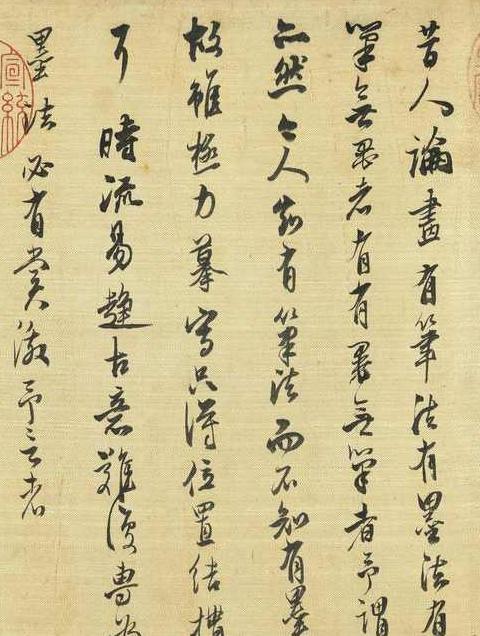 昔人論畫有筆法有墨法有
筆無墨者有有墨無筆者予謂
亦然今人知有筆法而不知有墨
故雖極力摹寫只得位置結構
耳時流易趨古意難復專為
墨法必有賞激予言者
宣統